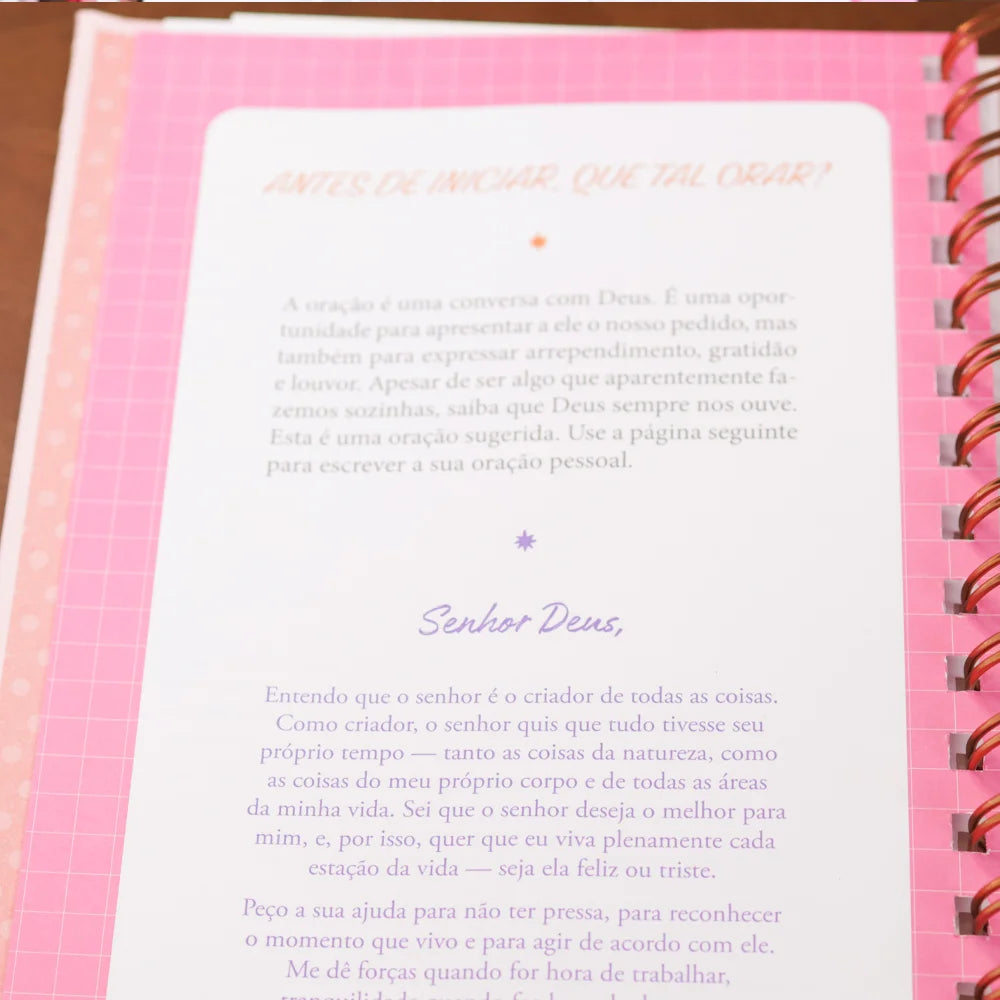 ANTES DE INICIAR, QUE TAL ORAR?
A oração é uma conversa com Deus. É uma opor-
tunidade para apresentar a ele o nosso pedido, mas
também para expressar arrependimento, gratidão
e louvor. Apesar de ser algo que aparentemente fa-
zemos sozinhas, saiba que Deus sempre nos ouve.
Esta é uma oração sugerida. Use a página seguinte
para escrever a sua oração pessoal.
Senhor Deus,
Entendo que o senhor é o criador de todas as coisas.
Como criador, o senhor quis que tudo tivesse seu
próprio tempo — tanto as coisas da natureza, como
as coisas do meu próprio corpo e de todas as áreas
da minha vida. Sei que o senhor deseja o melhor para
mim, e, por isso, quer que eu viva plenamente cada
estação da vida — seja ela feliz ou triste.
Peço a sua ajuda para não ter pressa, para reconhecer
o momento que vivo e para agir de acordo com ele.
Me dê forças quando for hora de trabalhar,